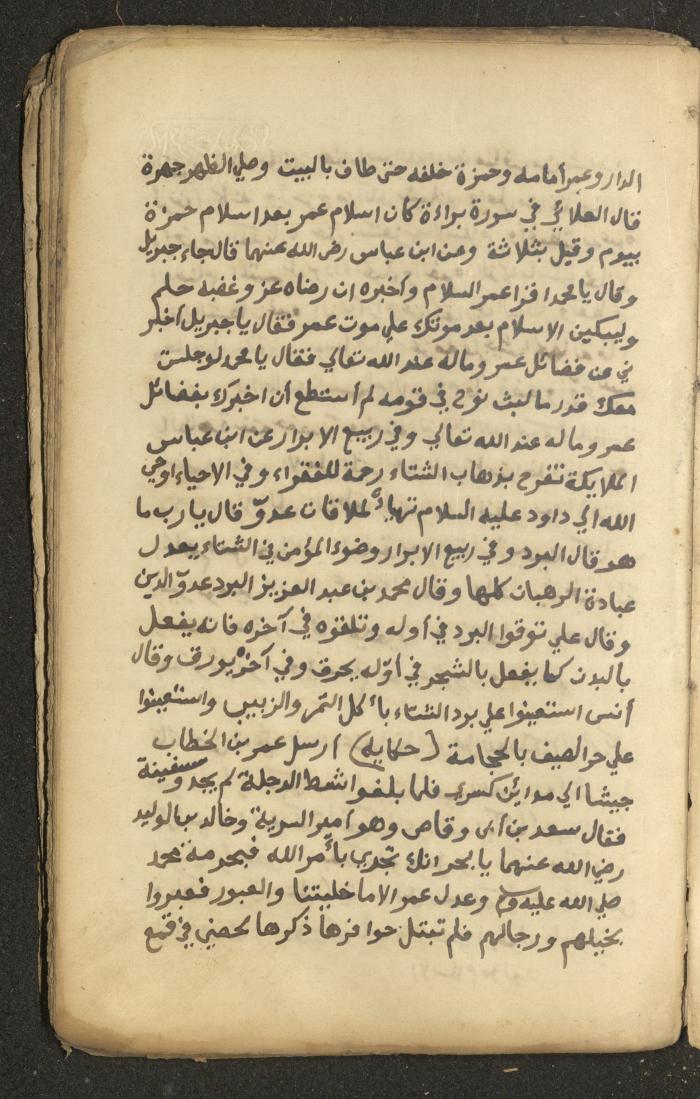 الدار وعمر أمامه وحمزة خلفه حتى طاف بالبيت وصلي الظهر جهرة
قال العلائي في سورة براءة كان اسلام عمر بعد اسلام حمزة
بيوم وقيل بثلاثة وعن ابن عباس رضي الله عنهما قال جاء جبريل
وقال يا محمد اقرا عمر السلام وأخبره ان رضاه عز وغضبه حلم
وليبكين الاسلام بعد موتك علي موت عمر فقال يا جبريل اخبر
ني عن فضائل عمر وماله عند الله تعالي فقال يا محمد لو جلست
معك قدر ما لبث نوح في قومه لم أستطع أن اخبرك بفضائل
عمر وماله عند الله تعالي وفي ربيع الابرار عن ابن عباس
الملايكة تفرح بذهاب الشتاء رحمة للفقراء وفي الاحياء اوحي
الله الي داود عليه السلام تهيأ لملاقات عدوّ قال يا رب ما
هو قال البرد وفي ربيع الابرار وضوء المؤمن في الشتاء يعدل
عبادة الرهبان كلها وقال محمد بن عبد العزيز البرد عدوّ الدين
وقال علي توقوا البرد في أوله وتلقوه في آخره فانه يفعل
بالبدن كما يفعل بالشجر في أوّله يحرق وفي آخره يورق وقال
أنس استعينوا علي برد الشتاء بأكل التمر والزبيب واستعينوا
علي حر الصيف بالحجامة (حكاية) أرسل عمر بن الخطاب
جيشا الي مدائن كسرى فلما بلغوا شط الدجلة لم يجدوا سفينة
فقال سعد بن أبى وقاص وهو أمير السرية وخالد بن الوليد
رضي الله عنهما يا بحر انك تجري بأمر الله فبحرمة محمد
صلي الله عليه وسلم وعدل عمر الاما خليتنا والعبور فعبروا
بخيلهم ورجالهم فلم تبتل حوافرها ذكرها الحصني في قمع